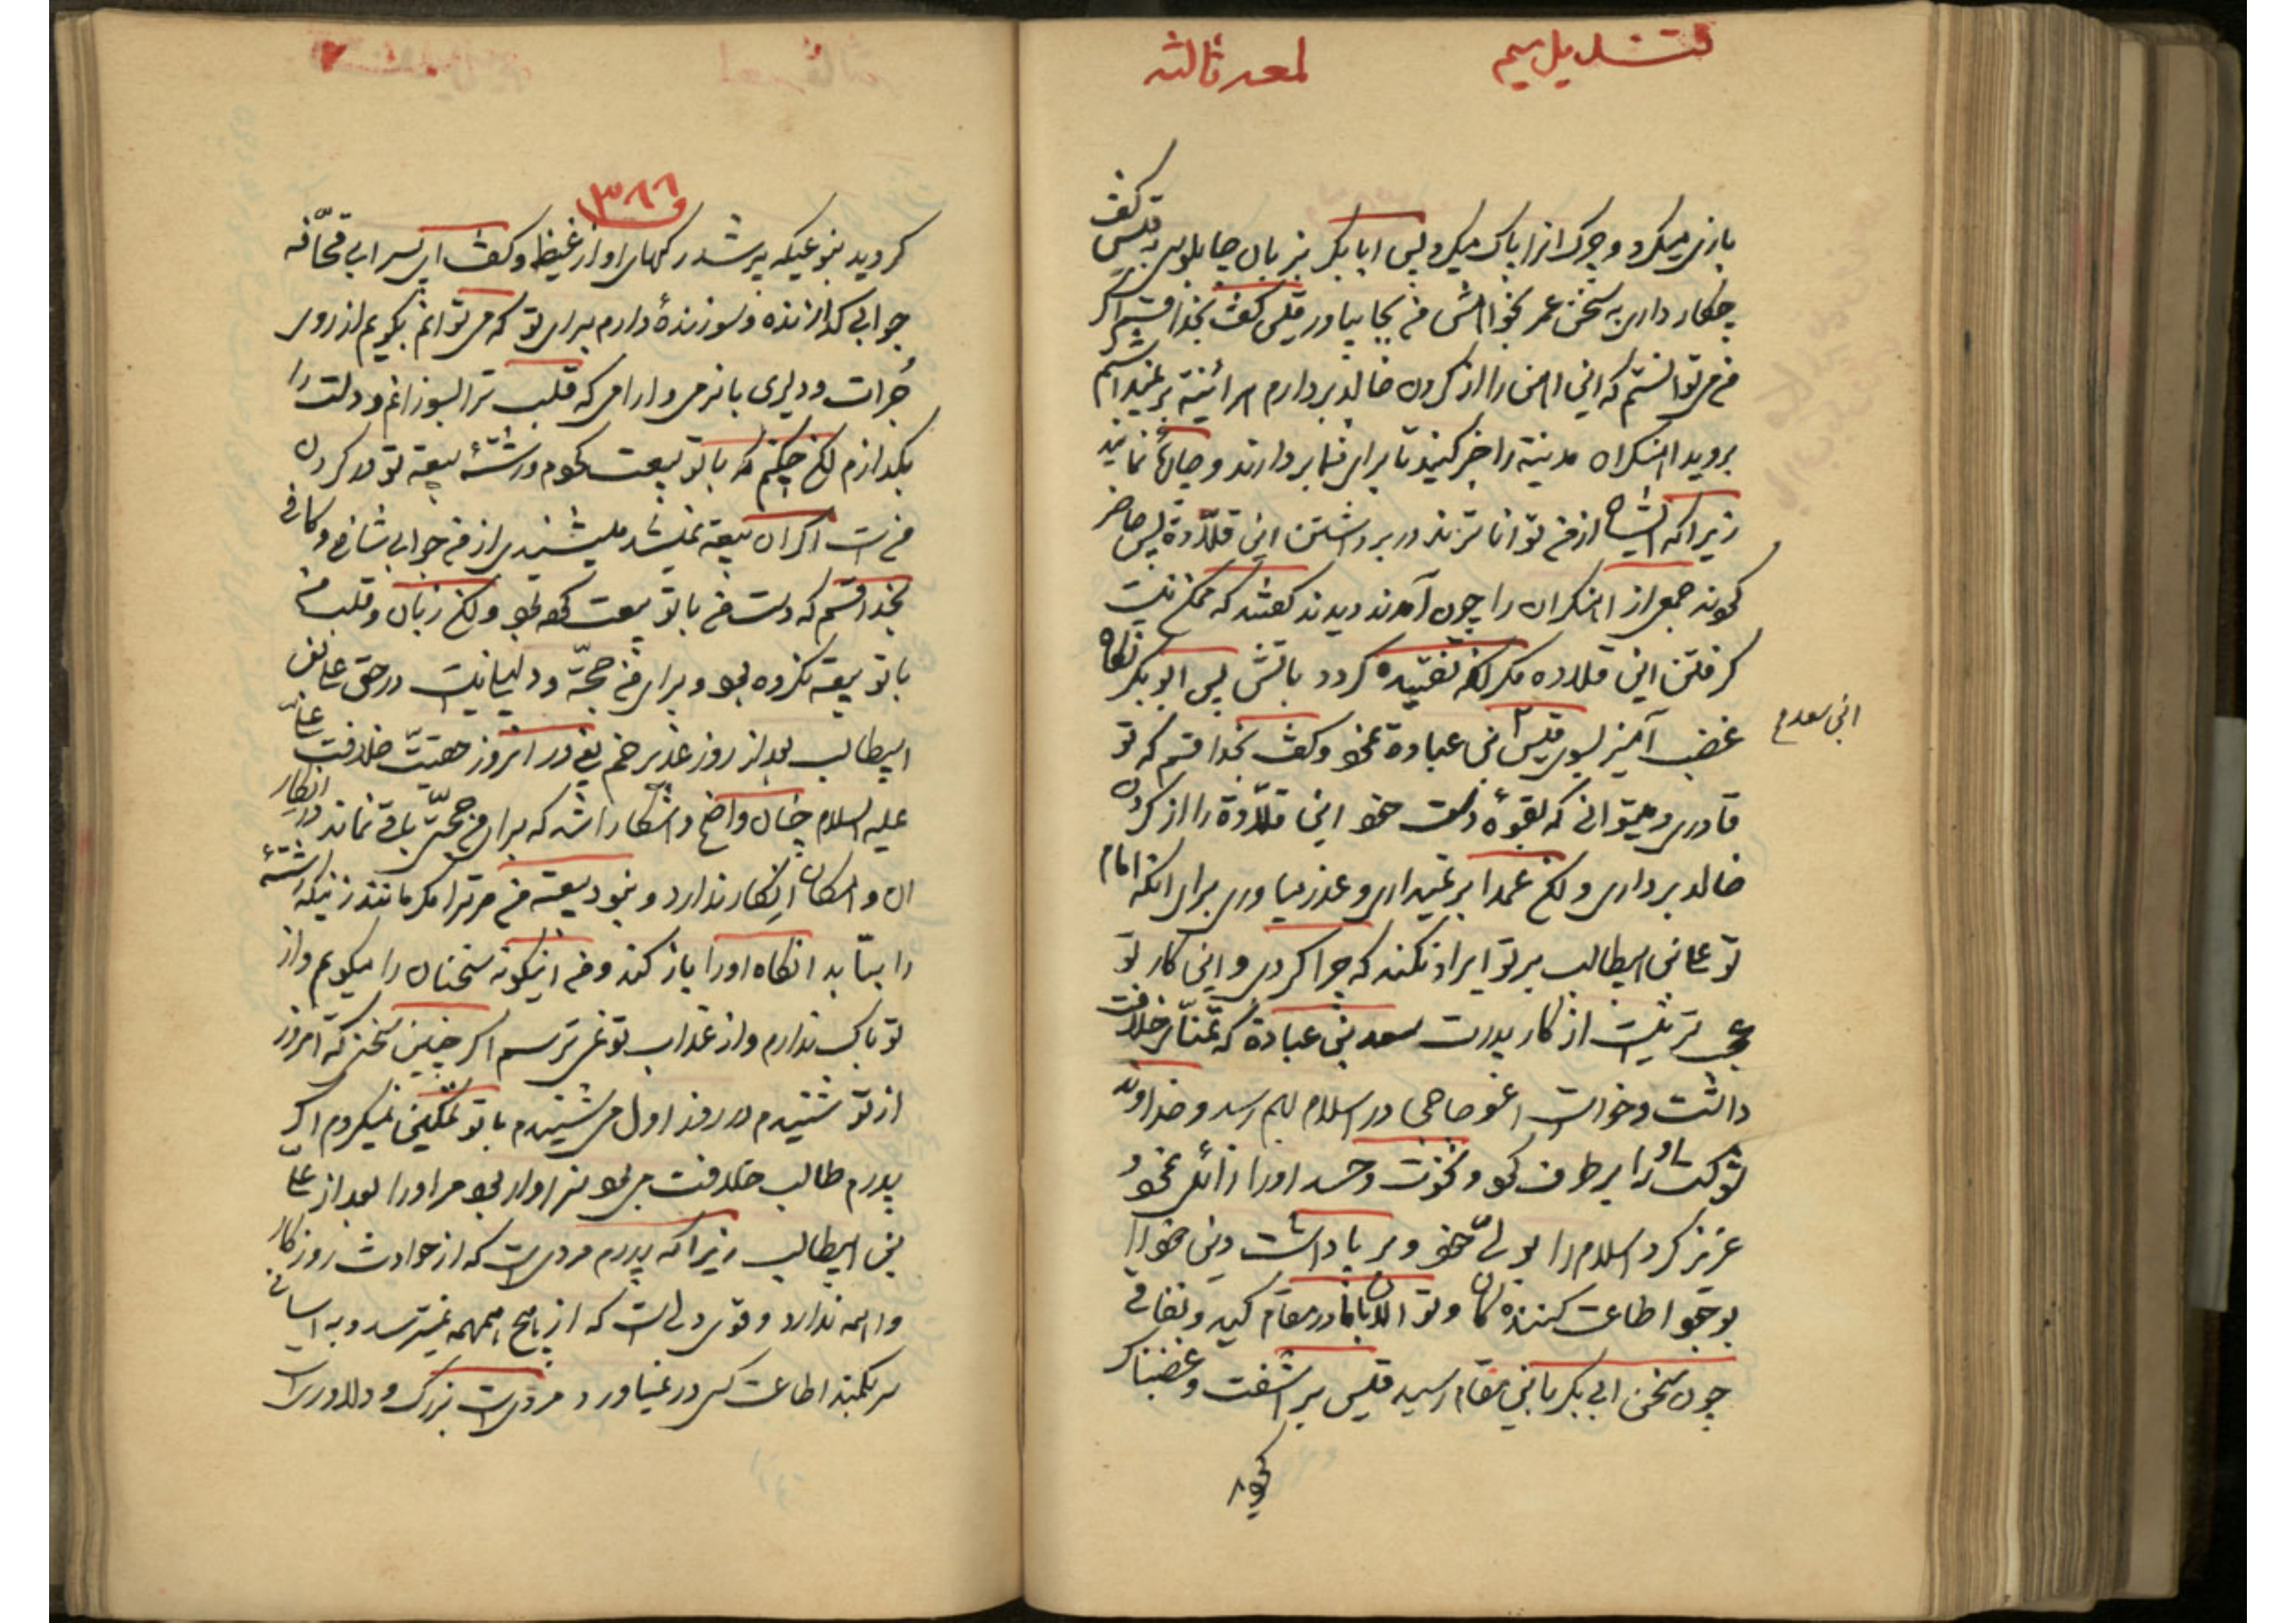 قندیل سیم
لمعه ثالثه
بازی میکرد و چرک انرا پاک میکرد پس ابابکر بزبان چاپلوسی به قلیس گفت
چکار داری به سخن عمر بخواهش من بجا بیاور قلیس گفت بخدا قسم اگر
من می توانستم که این اهن را از کردن خالد بردارم هر اینه بر نمیداشتم
بروید اهنکران مدینه را خبر کنید تا برای شما بردارند و چاره نمایند
زیرا که ایشان از من توانا ترند در برداشتن این قلادة پس حاضر
کردند جمعی از اهنکران را چون آمدند دیدند کفتند که ممکن نیست
کرفتن این قلاده مکر انکه تفتیده کردد باتش پس ابو بکر نکاه
غضب آمیز بسوی قلیس بن عبادة نمود وکفت بخدا قسم که تو
ابن سعد م
قادری و میتوانی که بقوهٔ دست خود این قلادة را از کردن
خالد برداری و لکن عمدا بر نمیداری و عذر میاوری برای انکه امام
تو علی بن ابیطالب بر تو ایراد نکند که چرا کردی و این کار تو
عجب تر نیست از کار پدرت سعد بن عبادة که تمنای خلافت
داشت و خواست اعوجاجی در اسلام بهم رسد و خداوند
شوکت او را بر طرف کرد و نخوت و حسد اورا زائل نمود و
عزیز کرد اسلام را بولی خود و بر پا داشت دین خود را
بوجود اطاعت کننده کان و تو الان با ما در مقام کید و نفاقی
چون سخن ابی بکر باین مقام رسید قلیس بر اشفت و غضبناک
کردید
۳۸۶
کردید بنوعیکه پر شد رکهای او از غیظ وکفت ای پسر ابی قحافه
جوابی کدازنده و سوزندهٔ دارم برای تو که می توانم بکویم از روی
جرات ودلیری با نرمی و ارامی که قلب ترا بسوزانم و دلت را
بکدازم لکن چکنم که با تو بیعت کردم و رشتهٔ بیعة تو در کردن
من است اکر ان بیعة نمیشد میشنیدی از من جوابی شافی و کافی
بخدا قسم که دست من با تو بیعت کرده بود ولکن زبان و قلب من
با تو بیعة نکرده بود و برای من حجة و دلیلی نیست در حق علی بن
ابیطالب بعد از روز غدیر خم یعنی در انروز حقیت خلافت علی
علیه السلام چنان واضح و اشکار شد که برای من حجتی باقی نماند در انکار
ان و امکان انکار ندارد و نبود بیعة من مر ترا مکر مانند زنیکه رشتهٔ
را بتابد انکاه اورا باز کند و من اینکونه سخنان را میکویم و از
تو باک ندارم و از عذاب تو نمی ترسم اکر چنین سخن که امروز
از تو شنیدم در روز اول می شنیدم با تو تمکین نمیکردم اکر
پدرم طالب خلافت می بود سزاوار بود مر اورا بعد از علی
بن ابیطالب زیرا که پدرم مردی است که از حوادث روزکار
واهمه ندارد و قوی دلی است که از هیچ همهمه نمیترسد و به اسانی
سر بکمند اطاعت کسی در نمیاورد مردی است بزرک و دلاوری